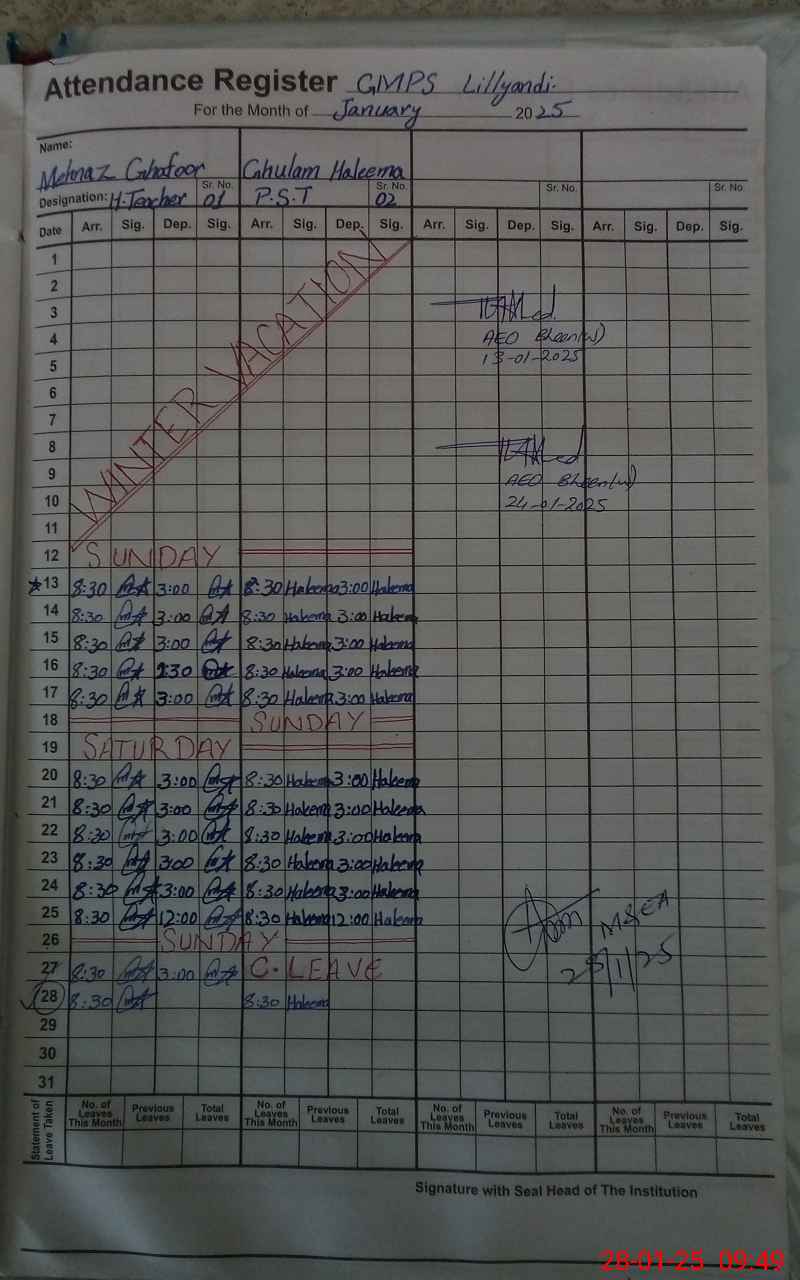 Attendance Register GMPS Lillyandi.
For the Month of January 2025
Name:
Mehnaz Ghafoor Ghulam Haleema
Designation: H.Teacher Sr. No. 01 P.S.T Sr. No. 02 Sr. No. Sr. No.
Date Arr. Sig. Dep. Sig. Arr. Sig. Dep. Sig. Arr. Sig. Dep. Sig. Arr. Sig. Dep. Sig.
WINTER VACATION
1
2
3
4 AEO Bheen(w)
5 13-01-2025
6
7
8
9 AEO Bheen(w)
10 24-01-2025
11
12 SUNDAY
13 8:30 3:00 8:30 Haleema 3:00 Haleema
14 8:30 3:00 8:30 Haleema 3:00 Haleema
15 8:30 3:00 8:30 Haleema 3:00 Haleema
16 8:30 1:30 8:30 Haleema 3:00 Haleema
17 8:30 3:00 8:30 Haleema 3:00 Haleema
18 SUNDAY
19 SATURDAY
20 8:30 3:00 8:30 Haleema 3:00 Haleema
21 8:30 3:00 8:30 Haleema 3:00 Haleema
22 8:30 3:00 8:30 Haleema 3:00 Haleema
23 8:30 3:00 8:30 Haleema 3:00 Haleema
24 8:30 3:00 8:30 Haleema 3:00 Haleema
25 8:30 12:00 8:30 Haleema 12:00 Haleema MSEA
26 SUNDAY
27 8:30 3:00 C. LEAVE 28/1/25
28 8:30 8:30 Haleema
29
30
31
Statement of Leave Taken
No. of Leaves This Month Previous Leaves Total Leaves No. of Leaves This Month Previous Leaves Total Leaves No. of Leaves This Month Previous Leaves Total Leaves No. of Leaves This Month Previous Leaves Total Leaves
Signature with Seal Head of The Institution
28-01-25 09:49